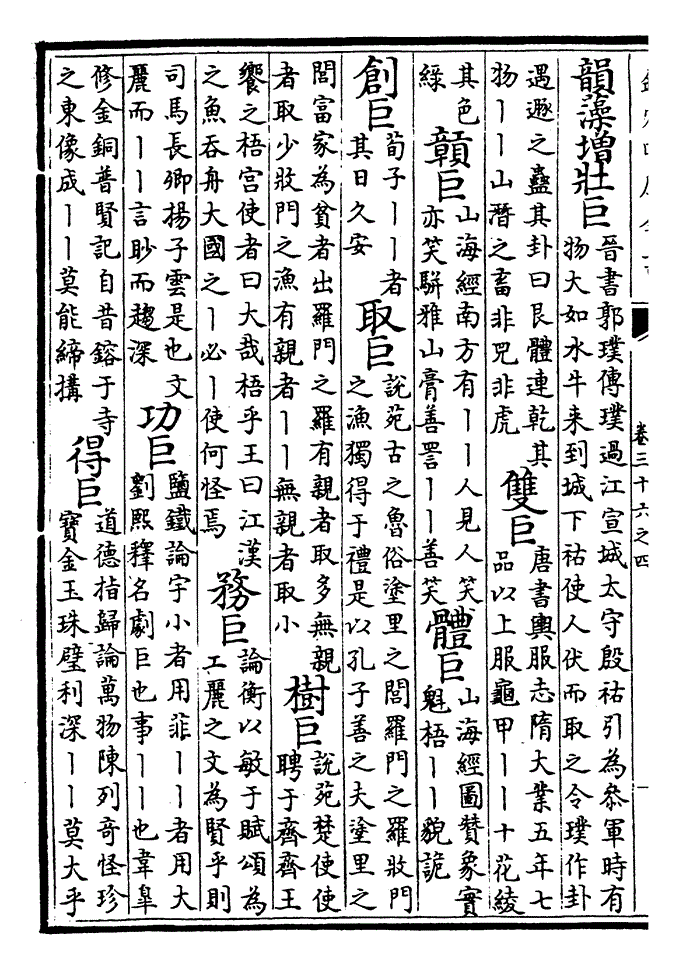 欽定四庫全書
卷三十六之四
一
韻藻增壯巨
晉書郭璞傳璞過江宣城太守殷祐引為叅軍時有
物大如水牛来到城下祐使人伏而取之令璞作卦
遇遯之蠱其卦曰艮體連乾其
物丨丨山潛之畜非兕非虎
雙巨
唐書輿服志隋大業五年七
品以上服龜甲丨丨十花綾
其色
綠
贑巨
山海經南方有丨丨人見人笑
亦笑駢雅山膏善詈丨丨善笑
體巨
山海經圖贊象實
魁梧丨丨貌詭
創巨
荀子丨丨者
其日久安
取巨
說苑古之魯俗塗里之閭羅門之羅收門
之漁獨得于禮是以孔子善之夫塗里之
閭富家為貧者出羅門之羅有親者取多無親
者取少收門之漁有親者丨丨無親者取小
樹巨
說苑楚使使
聘于齊齊王
饗之梧宫使者曰大哉梧乎王曰江漢
之魚吞舟大國之丨必丨使何怪焉
務巨
論衡以敏于賦頌為
工麗之文為賢乎則
司馬長卿揚子雲是也文
麗而丨丨言眇而趨深
功巨
鹽鐵論宇小者用菲丨丨者用大
劉熙釋名劇巨也事丨丨也韋皋
修金銅普賢記自昔鎔于寺
之東像成丨丨莫能締搆
得巨
道德指歸論萬物陳列奇怪珍
寶金玉珠璧利深丨丨莫大乎